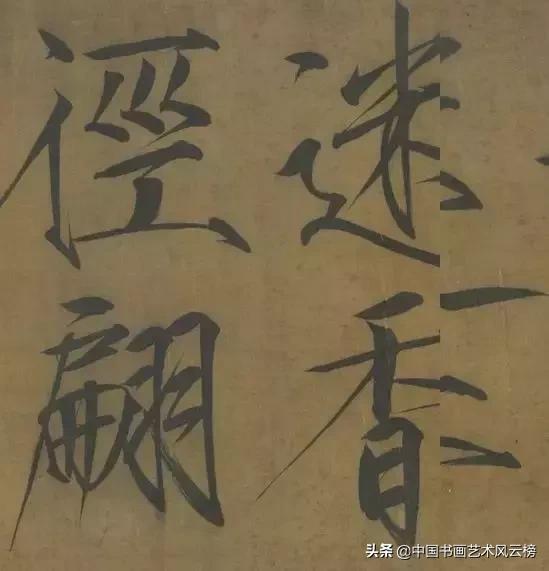 迷香
徑翩
头条 @中国书画艺术风云榜